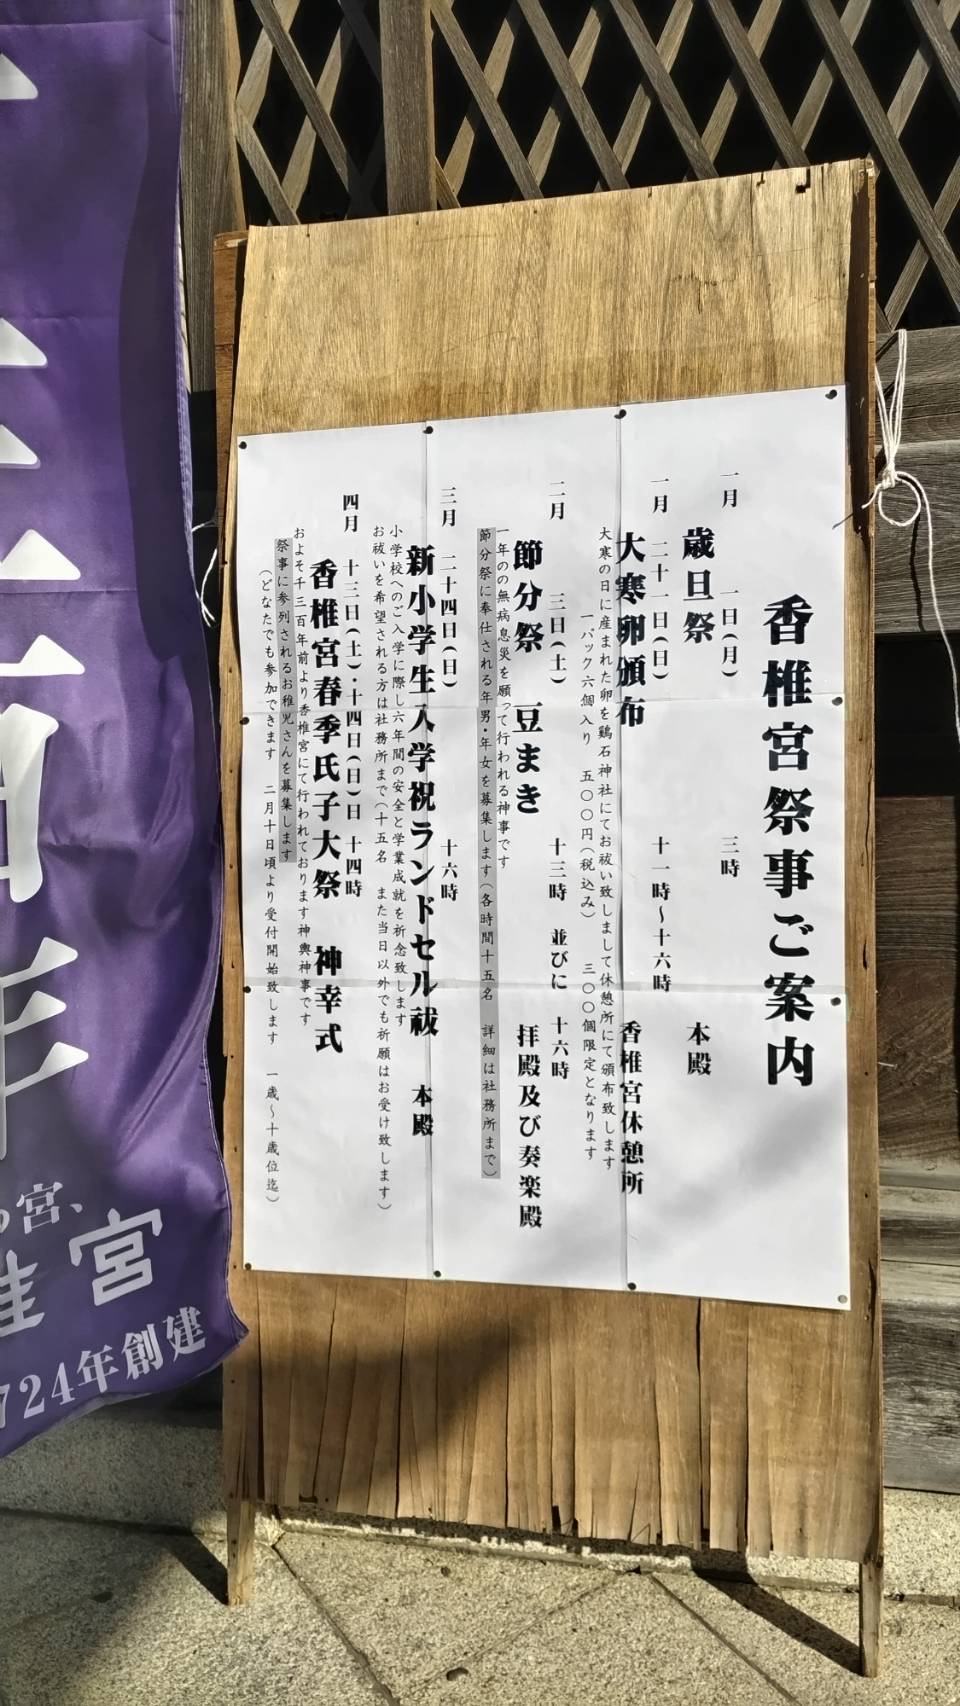 香椎宮祭事ご案内
一月 一日(月) 三時
歳旦祭 本殿
一月 二十一日(日) 十一時～十六時
大寒卵頒布 香椎宮休憩所
大寒の日に産まれた卵を鶏石神社にてお祓い致しまして休憩所にて頒布致します
一パック六個入り 五〇〇円(税込み) 三〇〇個限定となります
二月 三日(土) 十三時 並びに 十六時
節分祭 豆まき 拝殿及び奏楽殿
一年のの無病息災を願って行われる神事です
節分祭に奉仕される年男・年女を募集します(各時間十五名 詳細は社務所まで)
三月 二十四日(日) 十六時
新小学生入学祝ランドセル祓 本殿
小学校へのご入学に際し六年間の安全と学業成就を祈念致します
お祓いを希望される方は社務所まで(十五名 また当日以外でも祈願はお受け致します)
四月 十三日(土)・十四日(日)日 十四時
香椎宮春季氏子大祭 神幸式
およそ千三百年前より香椎宮にて行われております神輿神事です
祭事に参列されるお稚児さんを募集します
(どなたでも参加できます 二月十日頃より受付開始致します 一歳～十歳位迄)
宮、
椎宮
724年創建